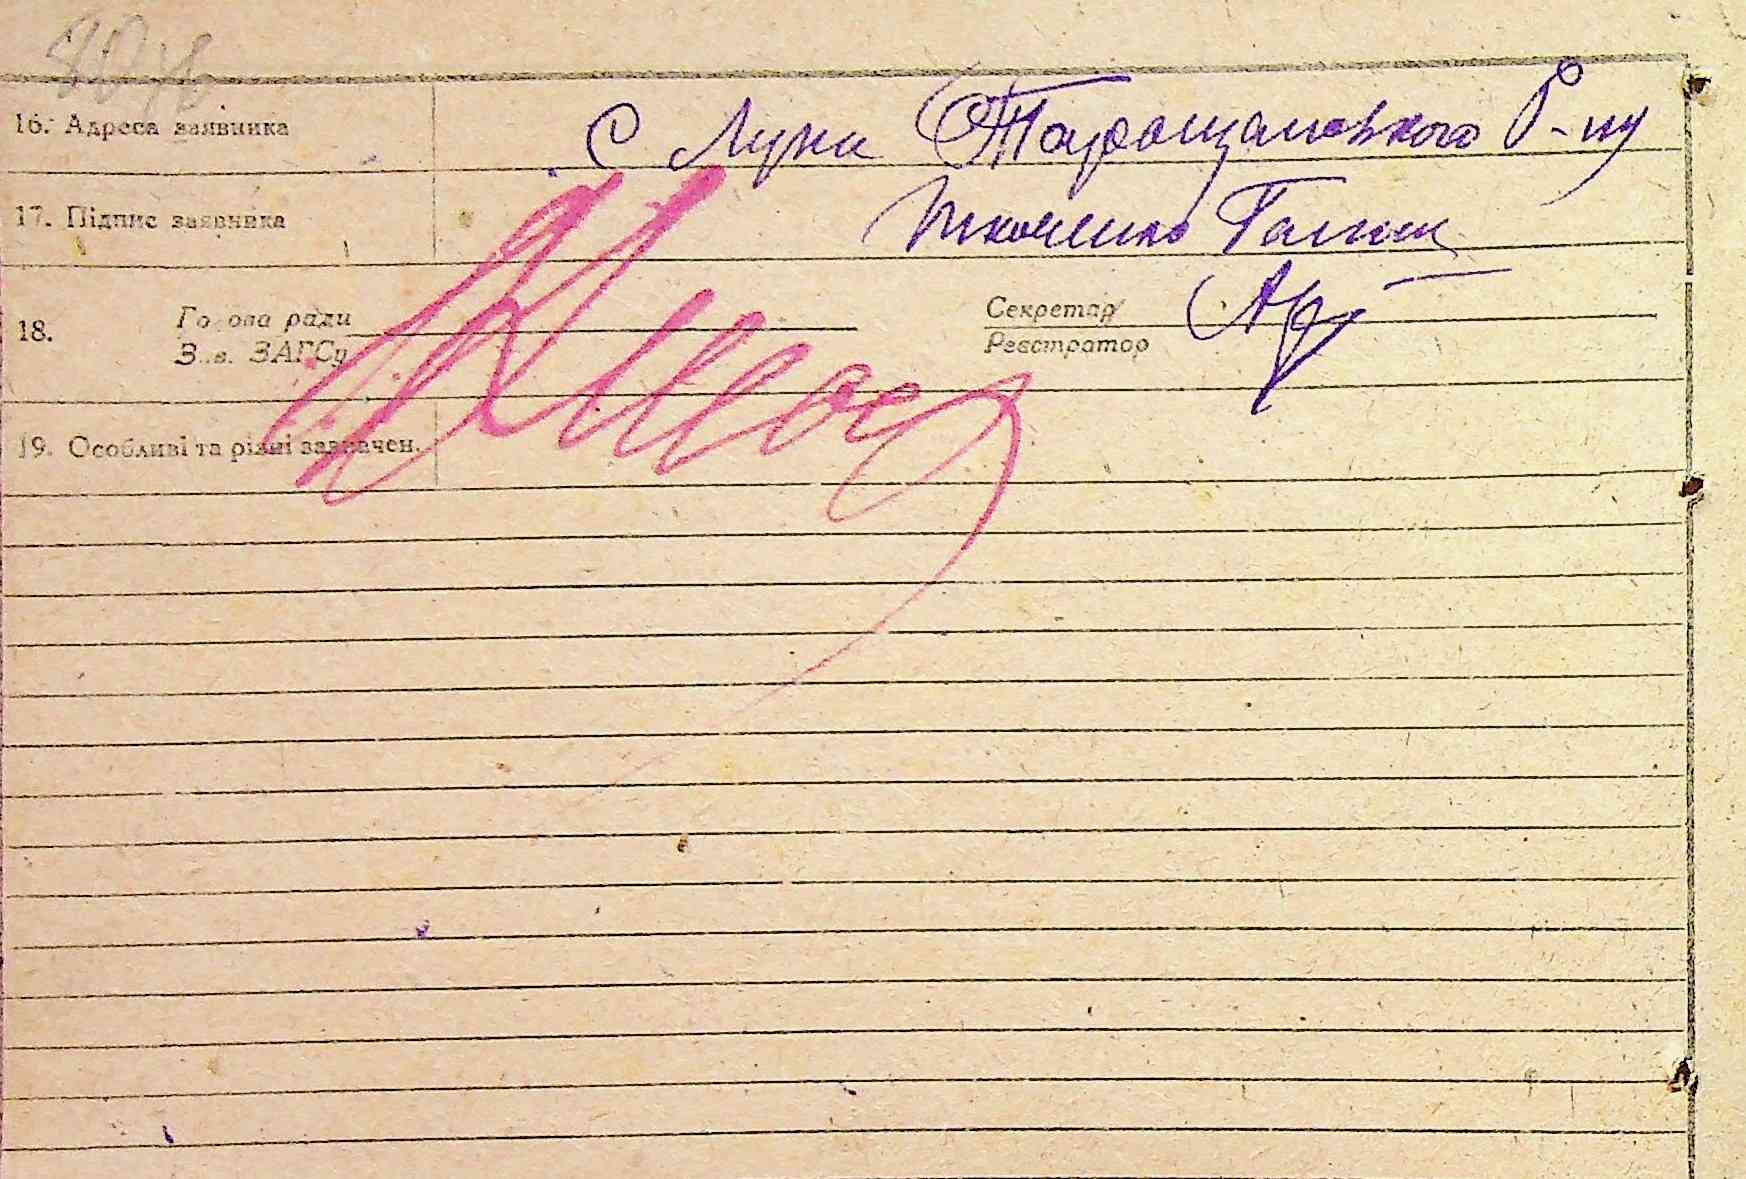 16. Адреса заявника С Лука Таращанського Р-ну
17. Підпис заявника Ткаченко Галина
18. Голова ради Секретар
Зав. ЗАГСу Реєстратор
19. Особливі та різні зазначен.